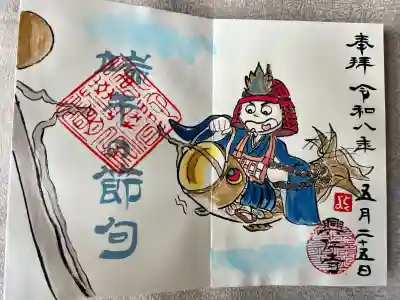 奉拝 令和八年
五月二十五日
端午の節句